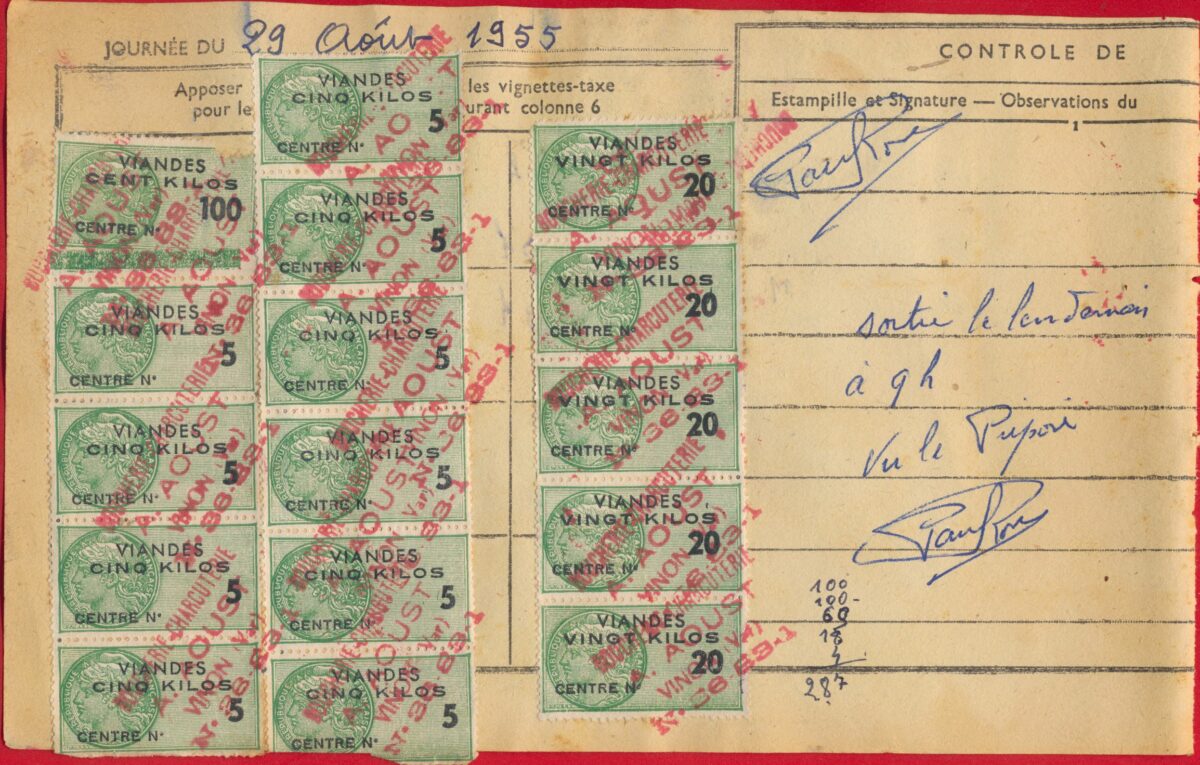 JOURNÉE DU 29 Août 1955
Apposer
les vignettes-taxe
pour le
urant colonne 6
VIANDES
CENT KILOS
100
CENTRE N°
VIANDES
CINQ KILOS
5
CENTRE N°
VIANDES
CINQ KILOS
5
CENTRE N°
VIANDES
CINQ KILOS
5
CENTRE N°
VIANDES
CINQ KILOS
5
CENTRE N°
VIANDES
CINQ KILOS
5
CENTRE N°
VIANDES
CINQ KILOS
5
CENTRE N°
VIANDES
CINQ KILOS
5
CENTRE N°
VIANDES
CINQ KILOS
5
CENTRE N°
VIANDES
CINQ KILOS
5
CENTRE N°
VIANDES
CINQ KILOS
5
CENTRE N°
VIANDES
VINGT KILOS
20
CENTRE N°
VIANDES
VINGT KILOS
20
CENTRE N°
VIANDES
VINGT KILOS
20
CENTRE N°
VIANDES
VINGT KILOS
20
CENTRE N°
VIANDES
VINGT KILOS
20
CENTRE N°
BOUCHERIE-CHARCUTERIE
A. AOUST
VINON (Var)
N. 36-83-1
CONTROLE DE
Estampille et Signature — Observations du
1
sortie le lendemain
à 9h
Vu le
100
100-
60
18
287